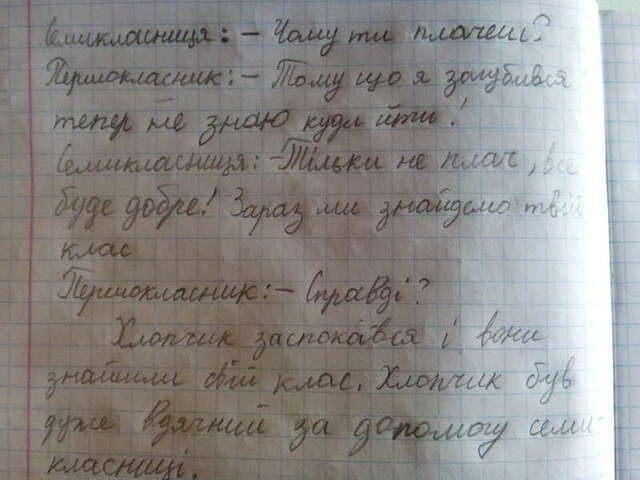 Семикласниця: – Чому ти плачеш?
Першокласник: – Тому що я загубився
тепер не знаю куди йти!
Семикласниця: – Тільки не плач, все
буде добре! Зараз ми знайдемо твій
клас
Першокласник: – Справді?
Хлопчик заспокоївся і вони
знайшли свій клас. Хлопчик був
дуже вдячний за допомогу семи-
класниці.